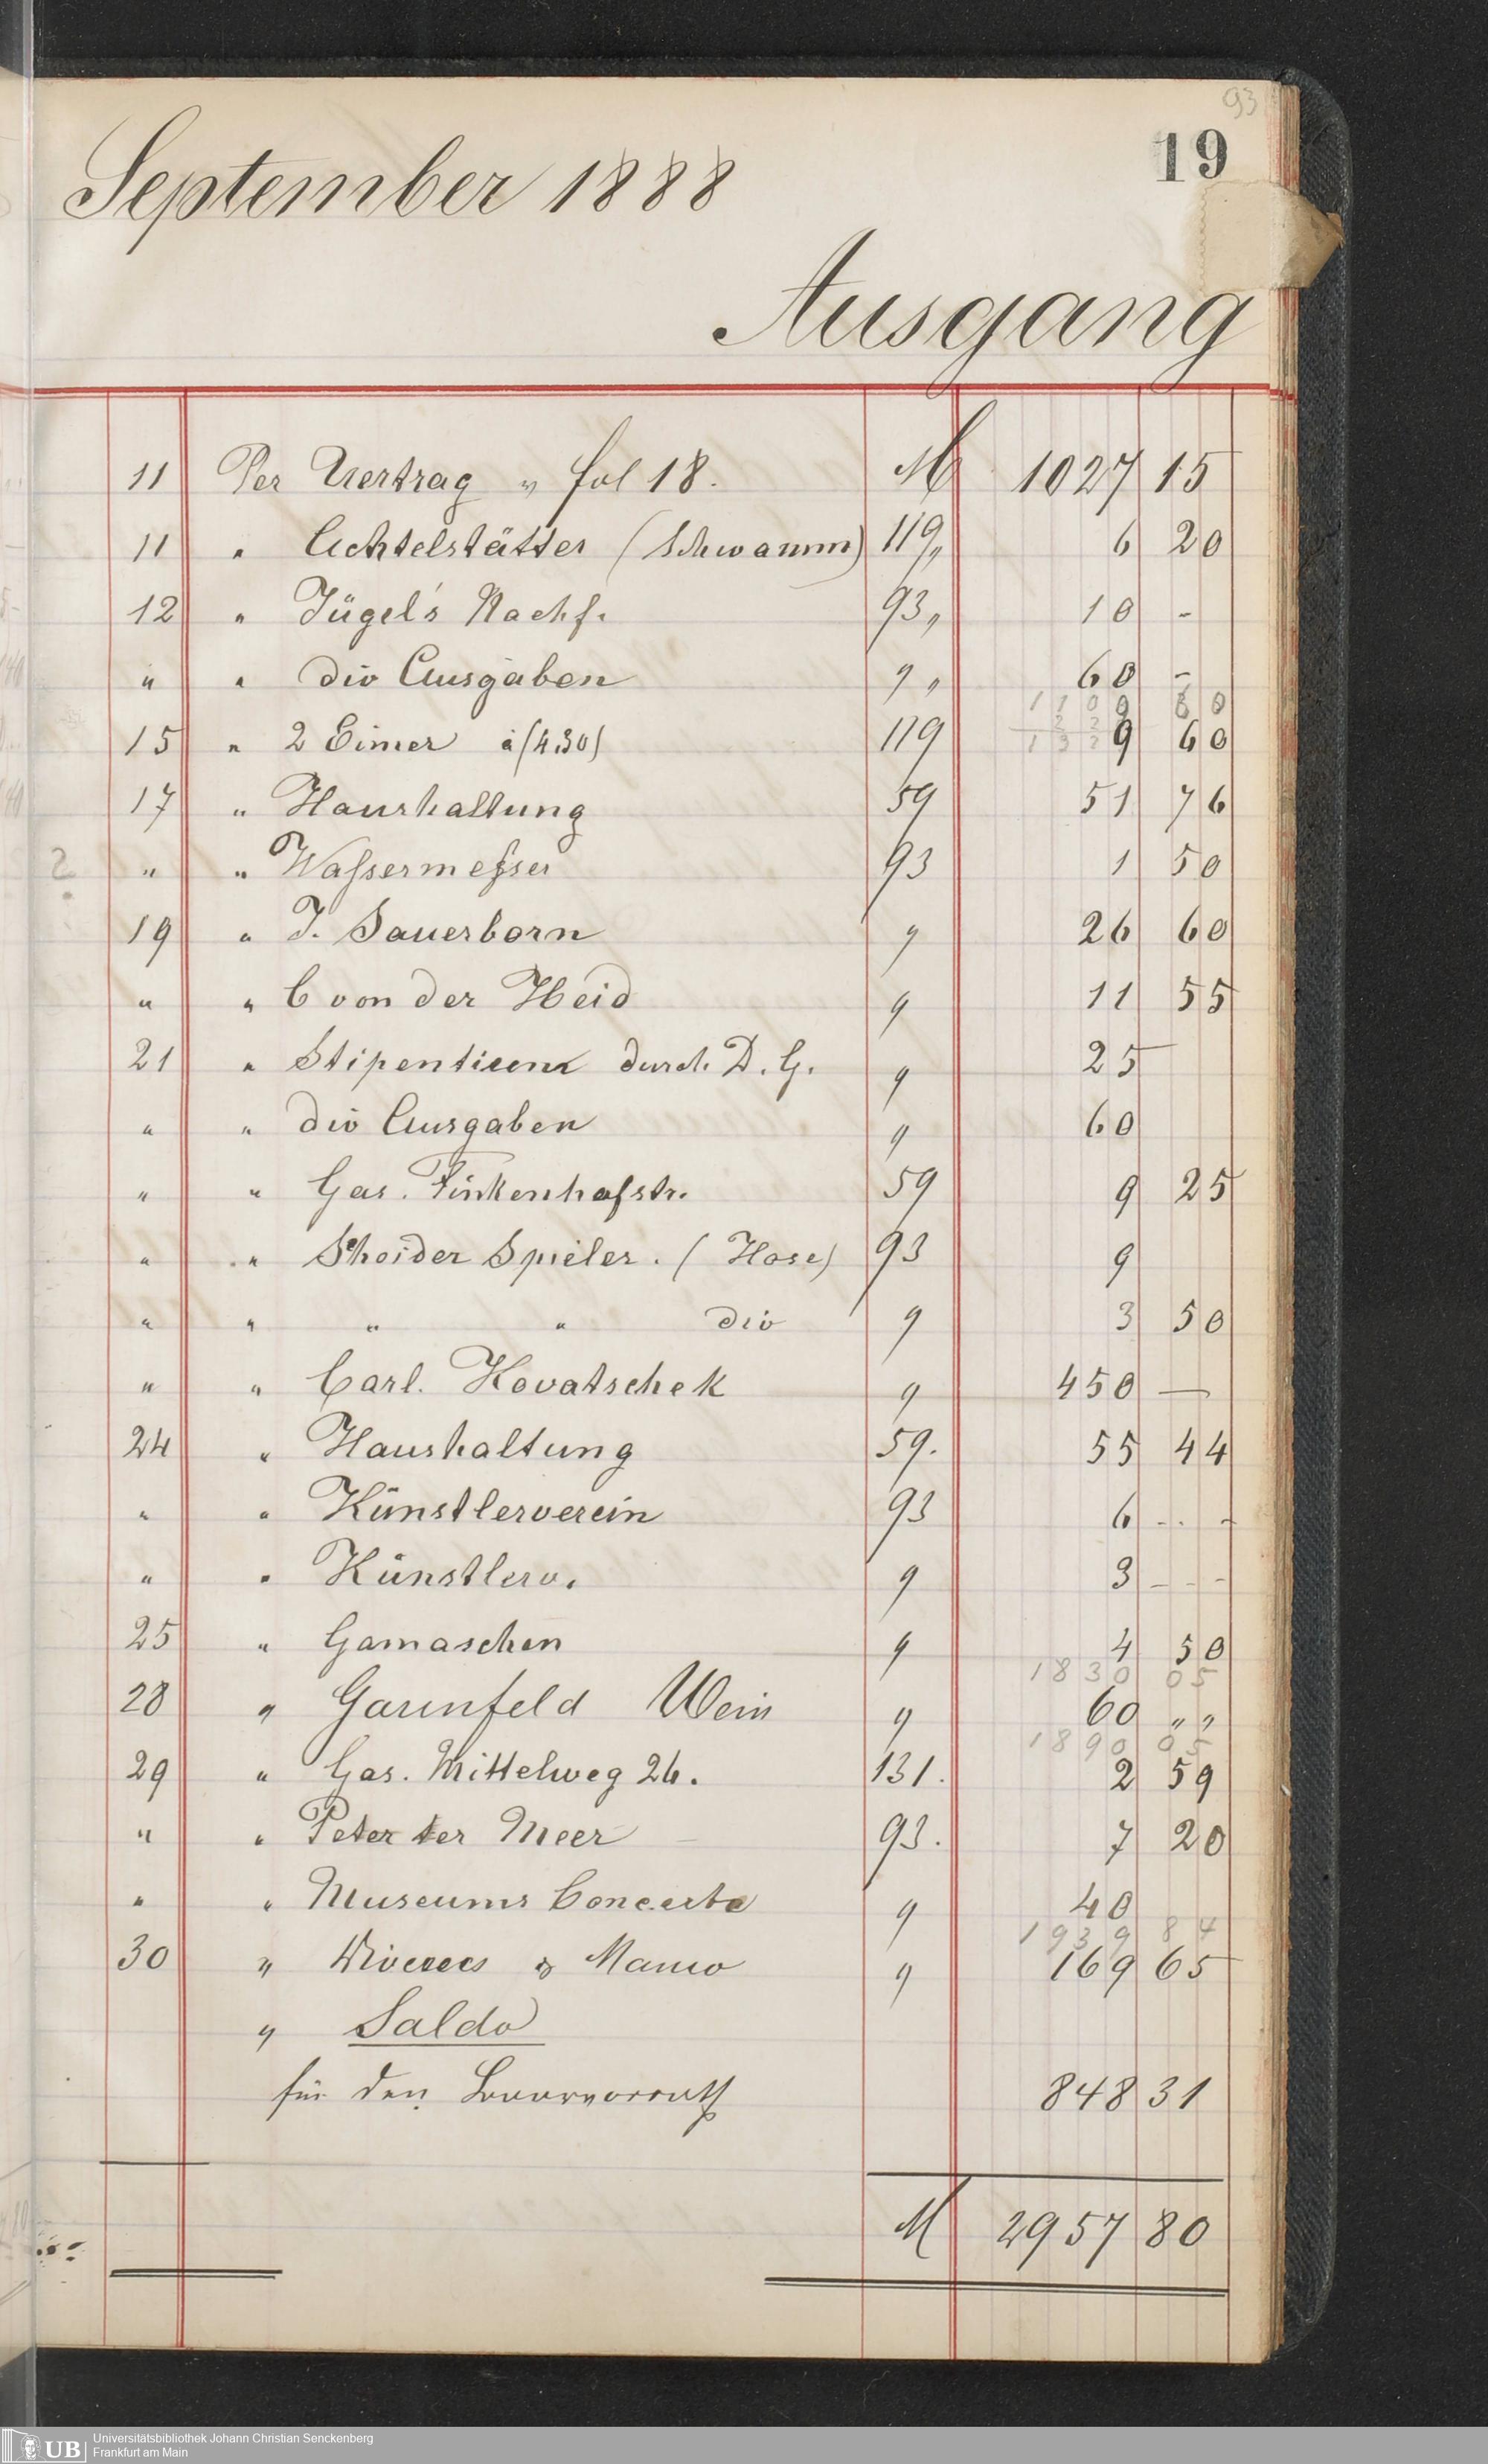 93
19
September 1888
Ausgang
11 Per Uertrag " fol 18. M 1027 15
11 " Achtelstätter (Schwamm) 119 " 6 20
12 " Jügel's Nachf. 93 " 10 -
" " div Ausgaben " " 60 -
1103 60
15 " 2 Eimer à (4.30) 119 9 60
17 " Haushaltung 59 51 76
2 " " Waſsermeſser 93 1 50
19 " J. Sauerborn " 26 60
" " C von der Heid " 11 55
21 " Stipentien durch D. G. " 25
" " div Ausgaben " 60
" " Gas. Finkenhofstr. 59 9 25
" " Sheider Spieler. (Hose) 93 9
" " " " div " 3 50
" " Carl. Kovatschek " 450 —
24 " Haushaltung 59. 55 44
" " Künstlerverein 93 6 - - -
" " Künstlerv. " 3 - - -
25 " Gamaschen " 4 50
1830 05
28 " Wein " 60 " "
1890 05
29 " Gas. Mittelweg 26. 131. 2 59
" " Peter ter Meer 93. 7 20
" " Museums Concerte " 40
1939 84
30 " " 169 65
" Saldo
für den Baarvorrath 848 31
M 2957 80
UB
Universitätsbibliothek Johann Christian Senckenberg
Frankfurt am Main